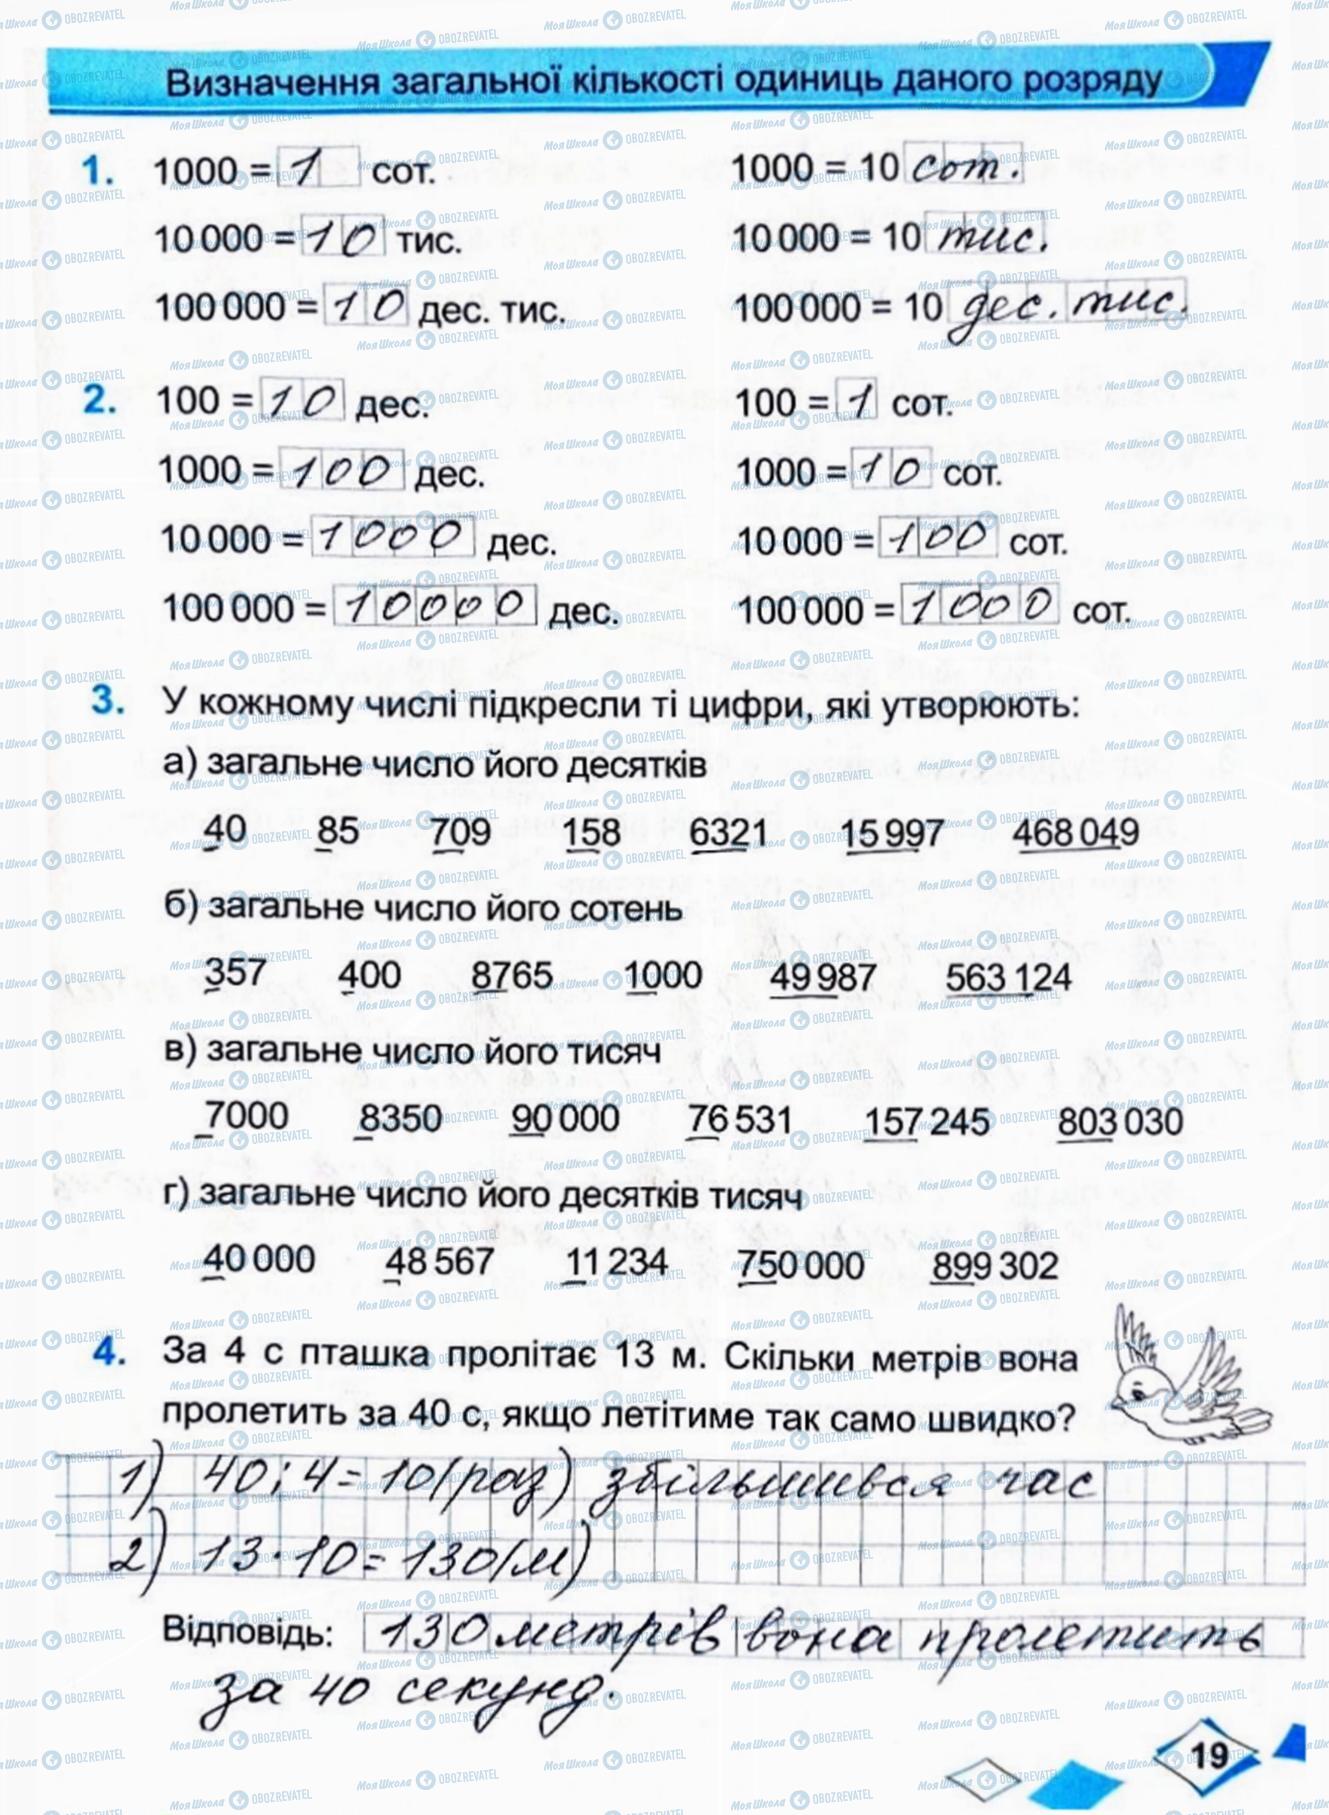 Визначення загальної кількості одиниць даного розряду
1. 1000 = 1 сот. 1000 = 10 сот.
10 000 = 10 тис. 10 000 = 10 тис.
100 000 = 10 дес. тис. 100 000 = 10 дес. тис.
2. 100 = 10 дес. 100 = 1 сот.
1000 = 100 дес. 1000 = 10 сот.
10 000 = 1000 дес. 10 000 = 100 сот.
100 000 = 10000 дес. 100 000 = 1000 сот.
3. У кожному числі підкресли ті цифри, які утворюють:
а) загальне число його десятків
40 85 709 158 6321 15 997 468 049
б) загальне число його сотень
357 400 8765 1000 49 987 563 124
в) загальне число його тисяч
7000 8350 90 000 76 531 157 245 803 030
г) загальне число його десятків тисяч
40 000 48 567 11 234 750 000 899 302
4. За 4 с пташка пролітає 13 м. Скільки метрів вона
пролетить за 40 с, якщо летітиме так само швидко?
1) 40 : 4 = 10 (раз) збільшився час
2) 13 · 10 = 130 (м)
Відповідь: 130 метрів вона пролетить
за 40 секунд.
19
МояШкола OBOZREVATEL